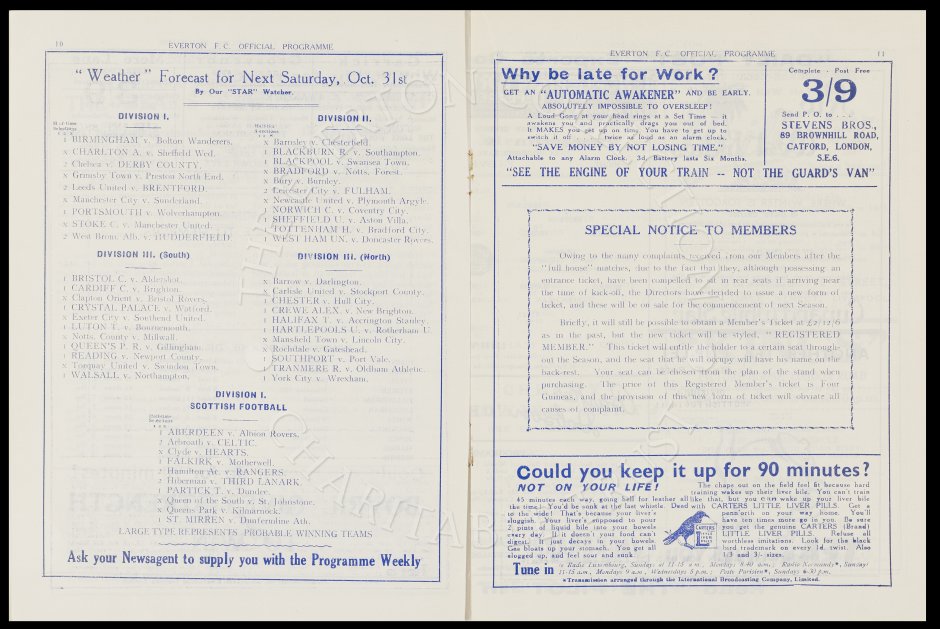 10
EVERTON F.C. OFFICIAL PROGRAMME
"Weather" Forecast for Next Saturday, Oct. 31st
By Our "STAR" Watcher.
DIVISION I.
1 BIRMINGHAM v. Bolton Wanderers.
x CHARLTON A. v. Sheffield Wed.
2 Chelsea v. DERBY COUNTY.
x Grimsby Town v. Preston North End.
2 Leeds United v. BRENTFORD.
x Manchester City v. Sunderland.
1 PORTSMOUTH v. Wolverhampton.
x STOKE C. v. Manchester United.
2 West Brom. Alb. v. HUDDERFIELD
DIVISION II.
x Barnsley v. Chesterfield.
1 BLACKBURN R. v. Southampton.
1 BLACKPOOL v. Swansea Town.
x BRADFORD v. Notts. Forest.
x Bury v. Burnley.
2 Leicester City v. FULHAM.
x Newcastle United v. Plymouth Argyle.
1 NORWICH C. v. Coventry City.
1 SHEFFIELD U. v. Aston Villa.
1 TOTTENHAM H. v. Bradford City.
1 WEST HAM UN. v. Doncaster Rovers.
DIVISION III. (South)
1 BRISTOL C. v. Aldershot.
1 CARDIFF C. v. Brighton.
x Clapton Orient v. Bristol Rovers.
1 CRYSTAL PALACE v. Watford.
x Exeter City v. Southend United.
1 LUTON T. v. Bournemouth.
x Notts. County v. Millwall.
1 QUEEN'S P. R. v. Gillingham.
1 READING v. Newport County.
x Torquay United v. Swindon Town.
1 WALSALL v. Northampton.
DIVISION III. (North)
x Barrow v. Darlington.
x Carlisle United v. Stockport County.
1 CHESTER v. Hull City.
1 CREWE ALEX. v. New Brighton.
1 HALIFAX T. v. Accrington Stanley.
1 HARTLEPOOLS U. v. Rotherham U.
x Mansfield Town v. Lincoln City.
x Rochdale v. Gateshead.
1 SOUTHPORT v. Port Vale.
1 TRANMERE R. v. Oldham Athletic.
1 York City v. Wrexham.
DIVISION I.
SCOTTISH FOOTBALL
1 ABERDEEN v. Albion Rovers.
2 Arbroath v. CELTIC.
x Clyde v. HEARTS.
1 FALKIRK v. Motherwell.
2 Hamilton Ac. v. RANGERS.
2 Hibernian v. THIRD LANARK.
1 PARTICK T. v. Dundee.
x Queen of the South v. St. Johnstone.
x Queens Park v. Kilmarnock.
1 ST. MIRREN v. Dunfermline Ath.
LARGE TYPE REPRESENTS PROBABLE WINNING TEAMS
Ask your Newsagent to supply you with the Programme Weekly
EVERTON F.C. OFFICIAL PROGRAMME
11
Why be late for Work?
GET AN "AUTOMATIC AWAKENER" AND BE EARLY.
ABSOLUTELY IMPOSSIBLE TO OVERSLEEP!
A Loud Gong at your head rings at a Set Time — it
awakens you and practically drags you out of bed.
It MAKES you get up on time. You have to get up to
switch it off . . . twice as loud as an alarm clock.
"SAVE MONEY BY NOT LOSING TIME."
Attachable to any Alarm Clock. 3d. Battery lasts Six Months.
Complete - Post Free
3/9
Send P.O. to . . .
STEVENS BROS.,
89 BROWNHILL ROAD,
CATFORD, LONDON,
S.E.6.
"SEE THE ENGINE OF YOUR TRAIN -- NOT THE GUARD'S VAN"
SPECIAL NOTICE TO MEMBERS
Owing to the many complaints received from our Members after the
"full house" matches, due to the fact that they, although possessing an
entrance ticket, have been compelled to sit in rear seats if arriving near
the time of kick-off, the Directors have decided to issue a new form of
ticket, and these will be on sale for the commencement of next Season.
Briefly, it will still be possible to obtain a Member's Ticket at £2/12/6
as in the past, but the new ticket will be styled, "REGISTERED
MEMBER." This ticket will entitle the holder to a certain seat through-
out the Season, and the seat that he will occupy will have his name on the
back-rest. Your seat can be chosen from the plan of the stand when
purchasing. The price of this Registered Member's ticket is Four
Guineas, and the provision of this new form of ticket will obviate all
causes of complaint.
Could you keep it up for 90 minutes?
NOT ON YOUR LIFE!
The chaps out on the field feel fit because hard
training wakes up their liver bile. You can't train
45 minutes each way, going hell for leather all like that, but you can wake up your liver bile
the time! You'd be sunk at the last whistle. Dead with CARTERS LITTLE LIVER PILLS. Get a
to the wide! That's because your liver's
sluggish. Your liver's supposed to pour
2 pints of liquid bile into your bowels
every day. If it doesn't your food can't
digest. It just decays in your bowels.
Gas bloats up your stomach. You get all
clogged up, and feel sour and sunk.
CARTERS
LITTLE
LIVER
PILLS
penn'orth on your way home. You'll
have ten times more go in you. Be sure
you get the genuine CARTERS (Brand)
LITTLE LIVER PILLS. Refuse all
worthless imitations. Look for the black
bird trademark on every 1d. twist. Also
1/3 and 3/- sizes.
Tune in
Radio Luxembourg, Sundays at 11-15 a.m., Mondays 8-40 a.m.; Radio Normandy*, Sundays
11-15 a.m., Mondays 9 a.m., Wednesdays 5 p.m.; Poste Parisien*, Sundays 6-30 p.m.
*Transmission arranged through the International Broadcasting Company, Limited.